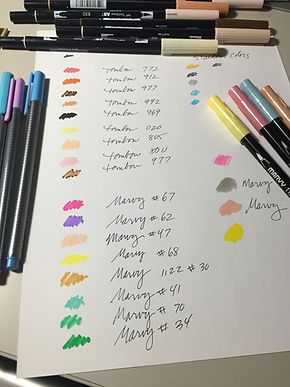 Colors
Tombow 772
Tombow 912
Tombow 977
Tombow 992
Tombow 969
Tombow 020
Tombow 805
Tombow 800
Tombow 977
Marvy
Marvy
Marvy #67
Marvy #62
Marvy #47
Marvy #68
Marvy 1122 #30
Marvy #41
Marvy #70
Marvy #34
MARVY